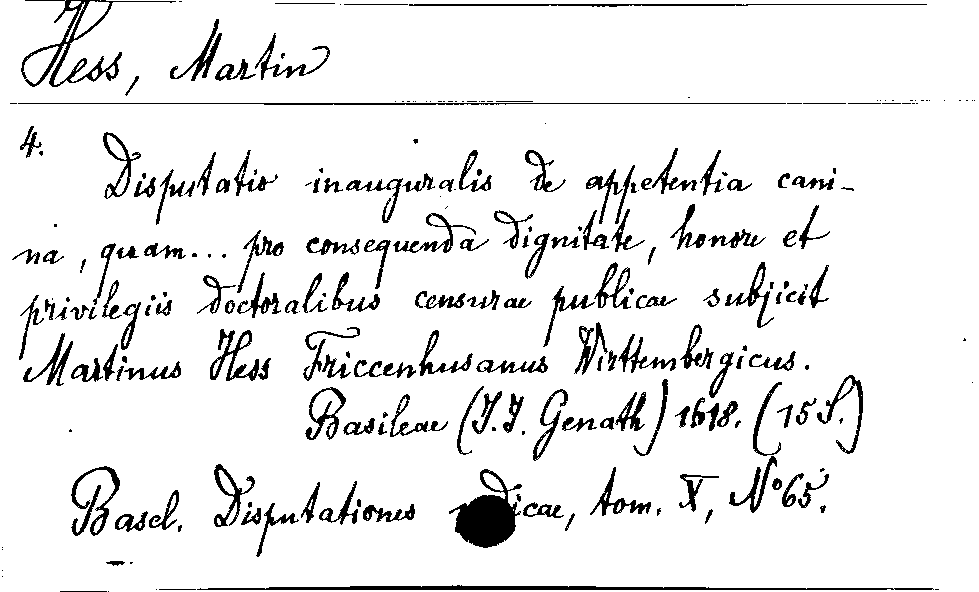 Hess, Martin
4.
Disputatio inauguralis de appetentia cani-
na, quam... pro consequenda dignitate, honore et
privilegiis doctoralibus censurae publicae subjicit
Martinus Hess Friccenhusanus Wirttembergicus.
Basileae (J. J. Genath) 1618. (15 S.)
Basel. Disputationes dicae, tom. X, No 65.